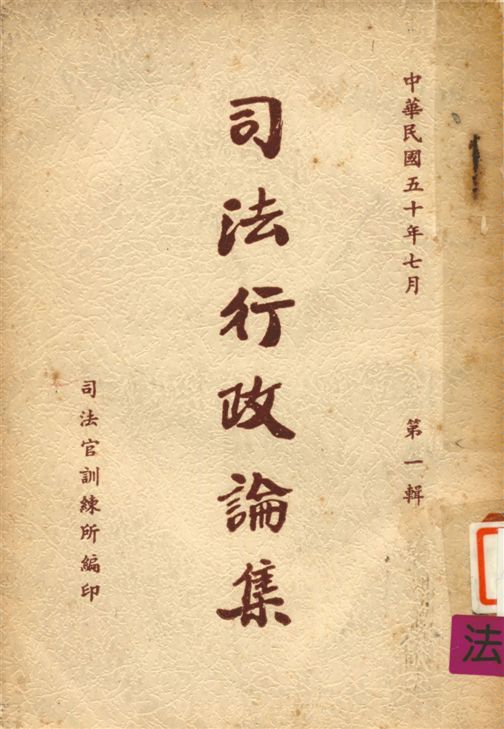 中華民國五十年七月　第一輯
司法行政論集
司法官訓練所編印
法